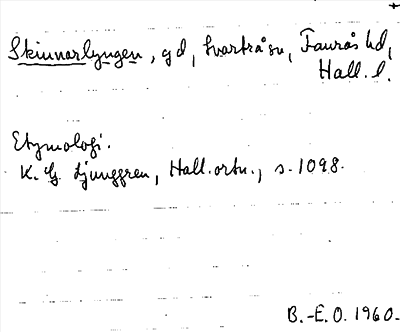 Skinnarlyngen, gd, Svartrå sn, Faurås hd,
Hall. l.
Etymologi.
K. G. Ljunggren, Hall. ortn., s. 1098.
B.-E.O. 1960.